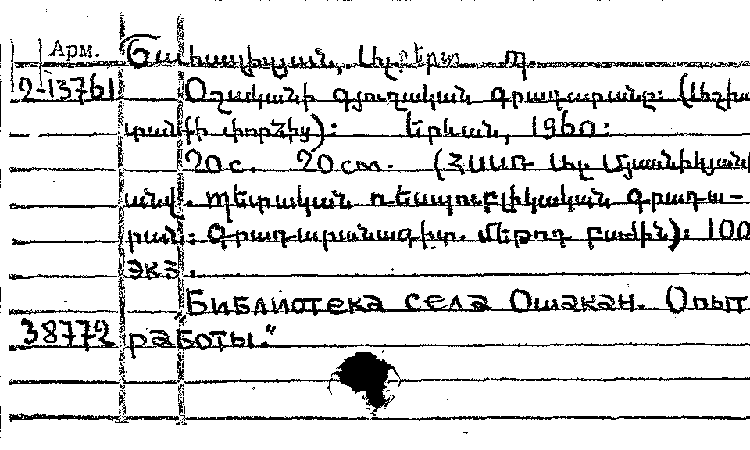 Арм.
2-13761 Օշականի գյուղական գրադարանը: (Աշխա
տանքի փորձից): Երևան, 1960:
20 с. 20 см. (ՀՍՍՌ Ալ. Մյասնիկյանի
անվ. պետական ռեսպուբլիկական գրադա-
րան: Գրադարանագիտ. մեթոդ բաժին): 100
экз.
"Библиотека села Ошакан. Опыт
38772 работы."